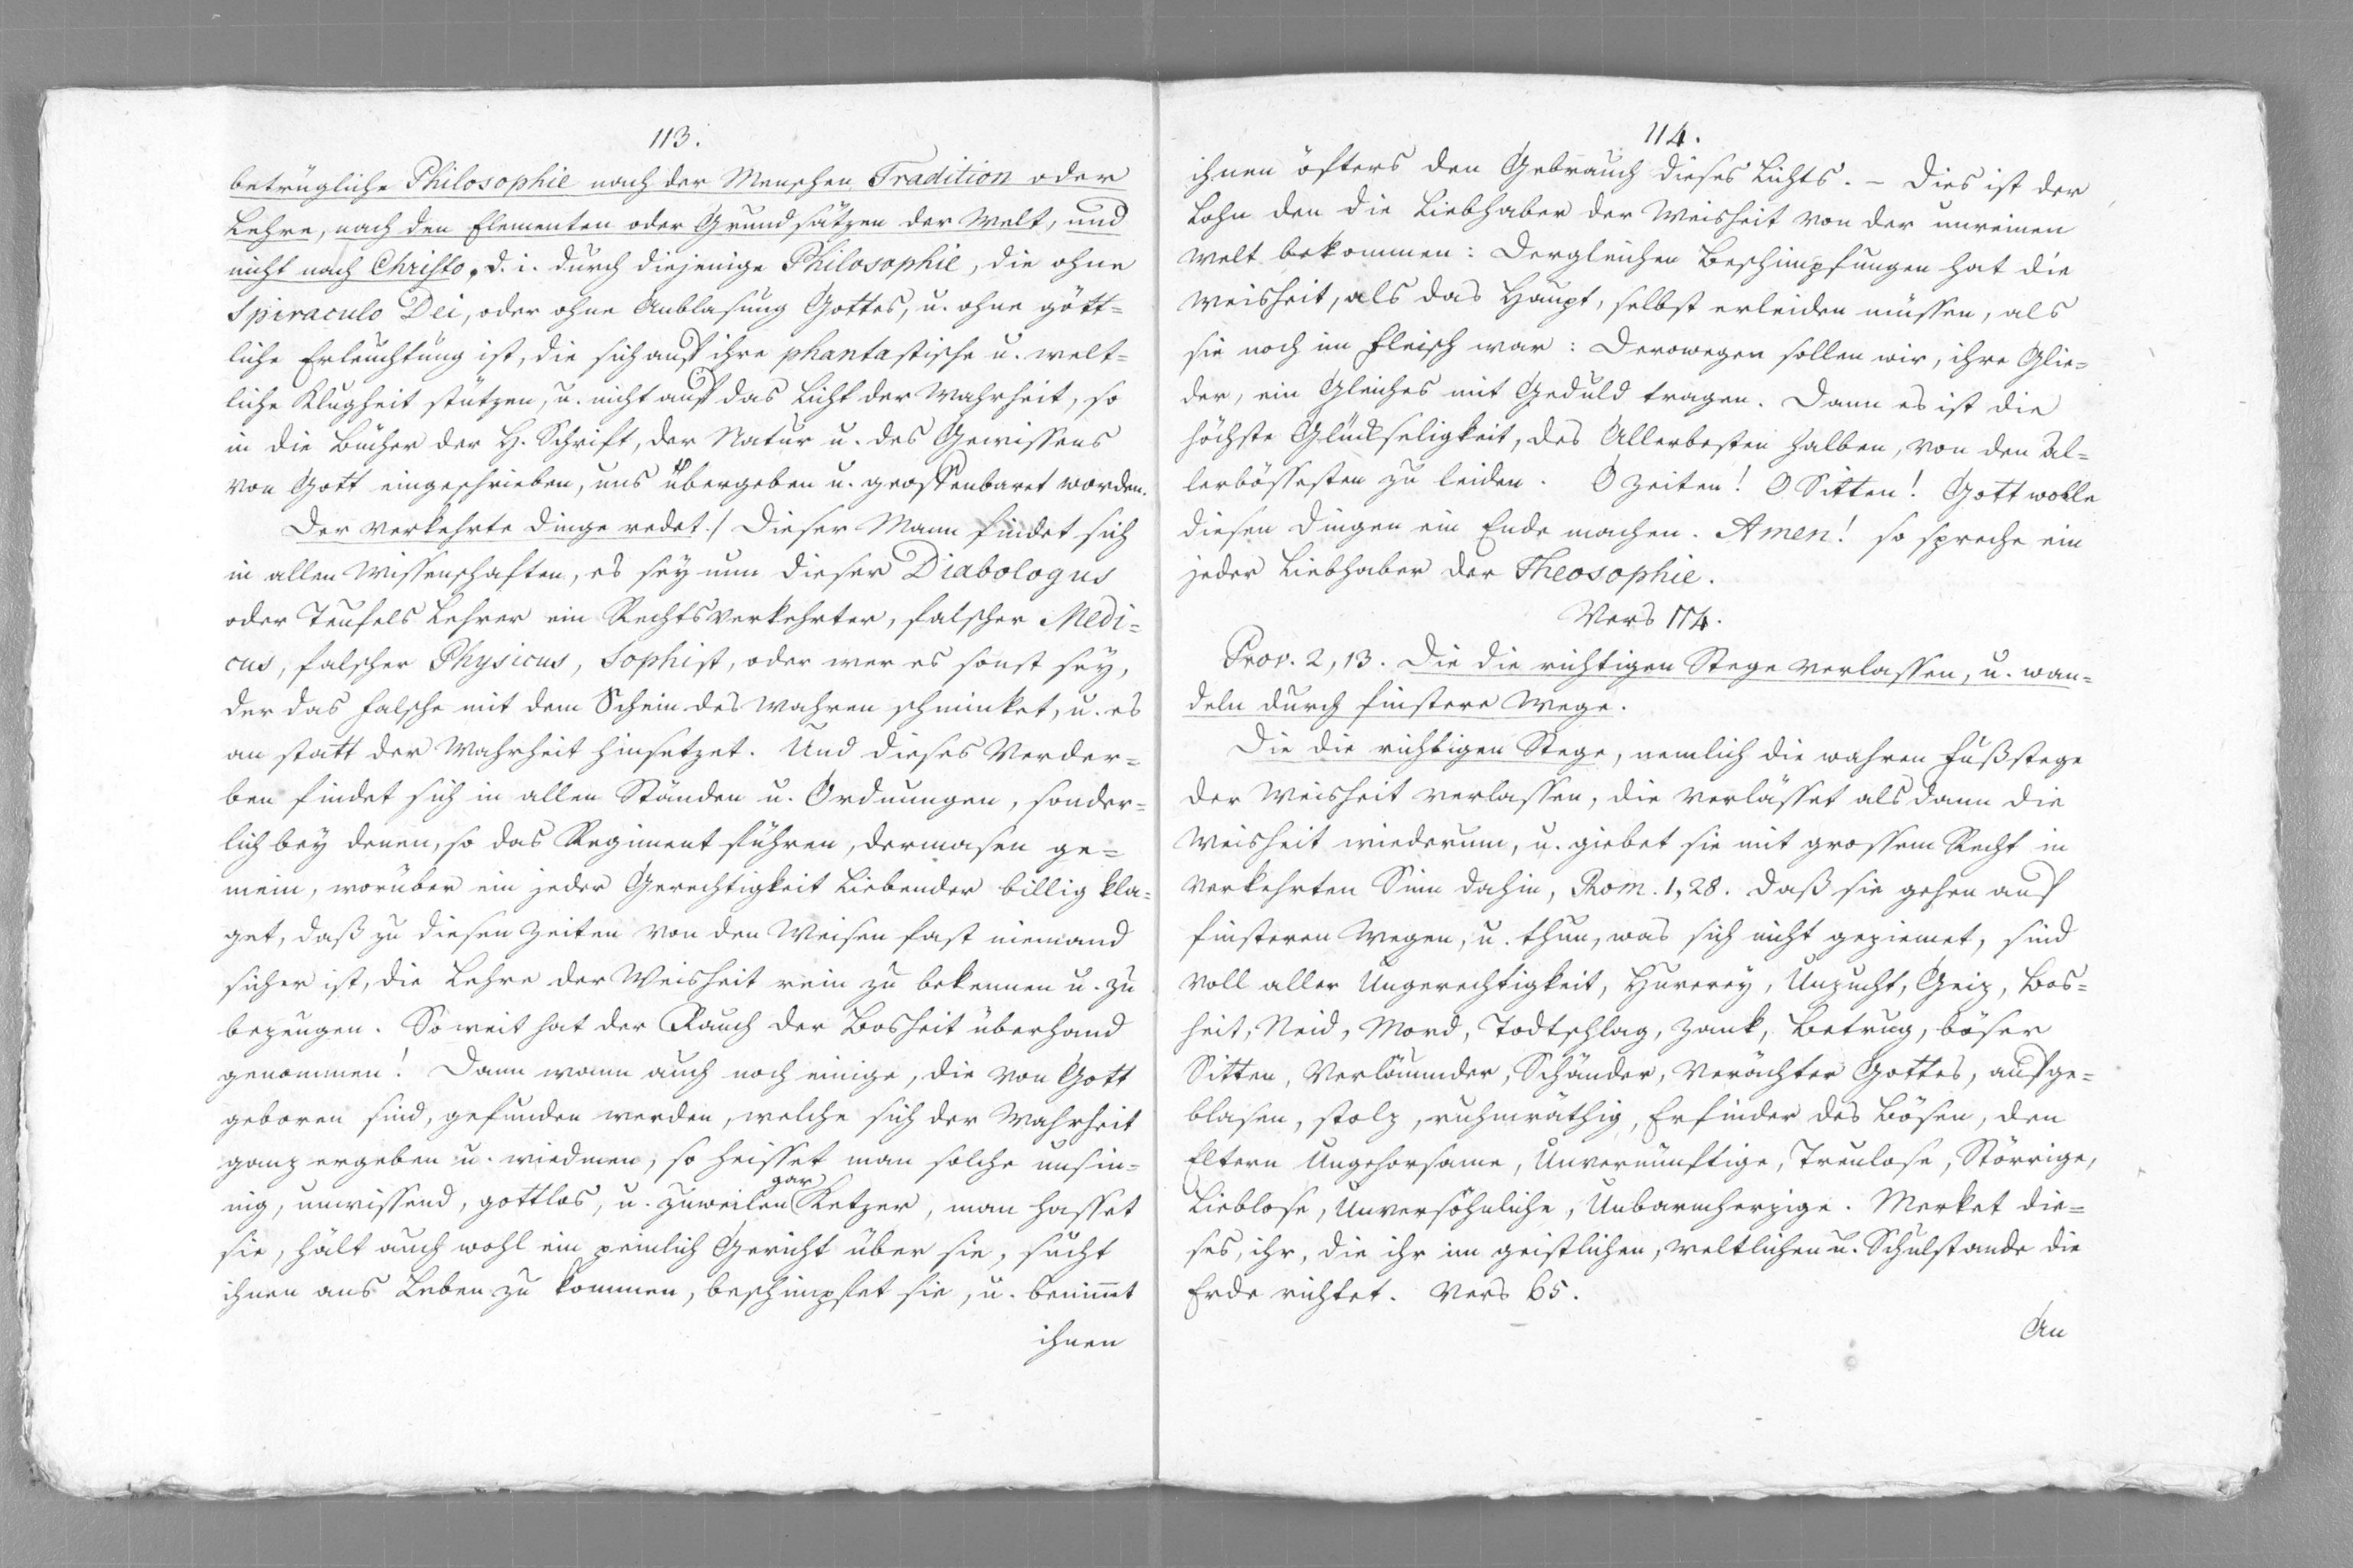 113.
betrügliche Philosophie nach der Menschen Tradition oder
Lehre, nach den Elementen oder Grundsätzen der Welt, und
nicht nach Christo, d. i. durch diejenige Philosophie, die ohne
Spiraculo Dei, oder ohne Anblasung Gottes, u. ohne gött=
liche Erleuchtung ist, die sich auf ihre phantastische u. welt=
liche Klugheit stützen, u. nicht auf das Licht der Wahrheit, so
in die Bücher der H. Schrift, der Natur u. des Gewissens
von Gott eingeschrieben, uns übergeben u. geoffenbaret worden.
Der verkehrte Dinge redet./ Dieser Mann findet sich
in allen Wissenschaften, es sey nun dieser Diabologus
oder Teufels Lehrer ein Rechtsverkehrter, falscher Medi=
cus, falscher Physicus, Sophist, oder wer es sonst sey,
der das Falsche mit dem Schein des Wahren schminket, u. es
an statt der Wahrheit hinsetzet. Und dieses Verder=
ben findet sich in allen Ständen u. Ordnungen, sonder=
lich bey denen, so das Regiment führen, dermasen ge=
mein, worüber ein jeder Gerechtigkeit Liebender billig kla=
get, daß zu diesen Zeiten von den Weisen fast niemand
sicher ist, die Lehre der Weisheit rein zu bekennen u. zu
bezeugen. So weit hat der Rauch der Bosheit überhand
genommen! Dann wann auch noch einige, die von Gott
geboren sind, gefunden werden, welche sich der Wahrheit
ganz ergeben u. wiedmen, so heisset man solche unsin=
nig, unwissend, gottlos, u. zuweilen gar Ketzer, man hasset
sie, hält auch wohl ein peinlich Gericht über sie, sucht
ihnen ans Leben zu kommen, beschimpfet sie, u. benimmt
ihnen
114.
ihnen öfters den Gebrauch dieses Lichts. – Dies ist der
Lohn den die Liebhaber der Weisheit von der unreinen
Welt bekommen: Dergleichen Beschimpfungen hat die
Weisheit, als das Haupt, selbst erleiden müssen, als
sie noch im Fleisch war: Derowegen sollen wir, ihre Glie=
der, ein Gleiches mit Geduld tragen. Dann es ist die
höchste Glückseligkeit, des Allerbesten halben, von den Al=
lerbössesten zu leiden. O Zeiten! O Sitten! Gott wolle
diesen Dingen ein Ende machen. Amen! so spreche ein
jeder Liebhaber der Theosophie.
Vers 114.
Prov. 2, 13. Die die richtigen Stege verlassen, u. wan=
deln durch finstere Wege.
Die die richtigen Stege, nemlich die wahren Fußstege
der Weisheit verlassen, die verlässet als dann die
Weisheit wiederum, u. giebet sie mit grossem Recht in
verkehrten Sinn dahin, Rom. 1, 28. daß sie gehen auf
finsteren Wegen, u. thun, was sich nicht geziemet, sind
voll aller Ungerechtigkeit, Hurerey, Unzucht, Geiz, Bos=
heit, Neid, Mord, Todtschlag, Zank, Betrug, böser
Sitten, Verläumder, Schänder, Verächter Gottes, aufge=
blasen, stolz, ruhmräthig, Erfinder des Bösen, den
Eltern Ungehorsame, Unvernünftige, Treulose, Störrige,
Lieblose, Unversöhnliche, Unbarmherzige. Merket die=
ses, ihr, die ihr im geistlichen, weltlichen u. Schulstande die
Erde richtet. Vers 65.
An